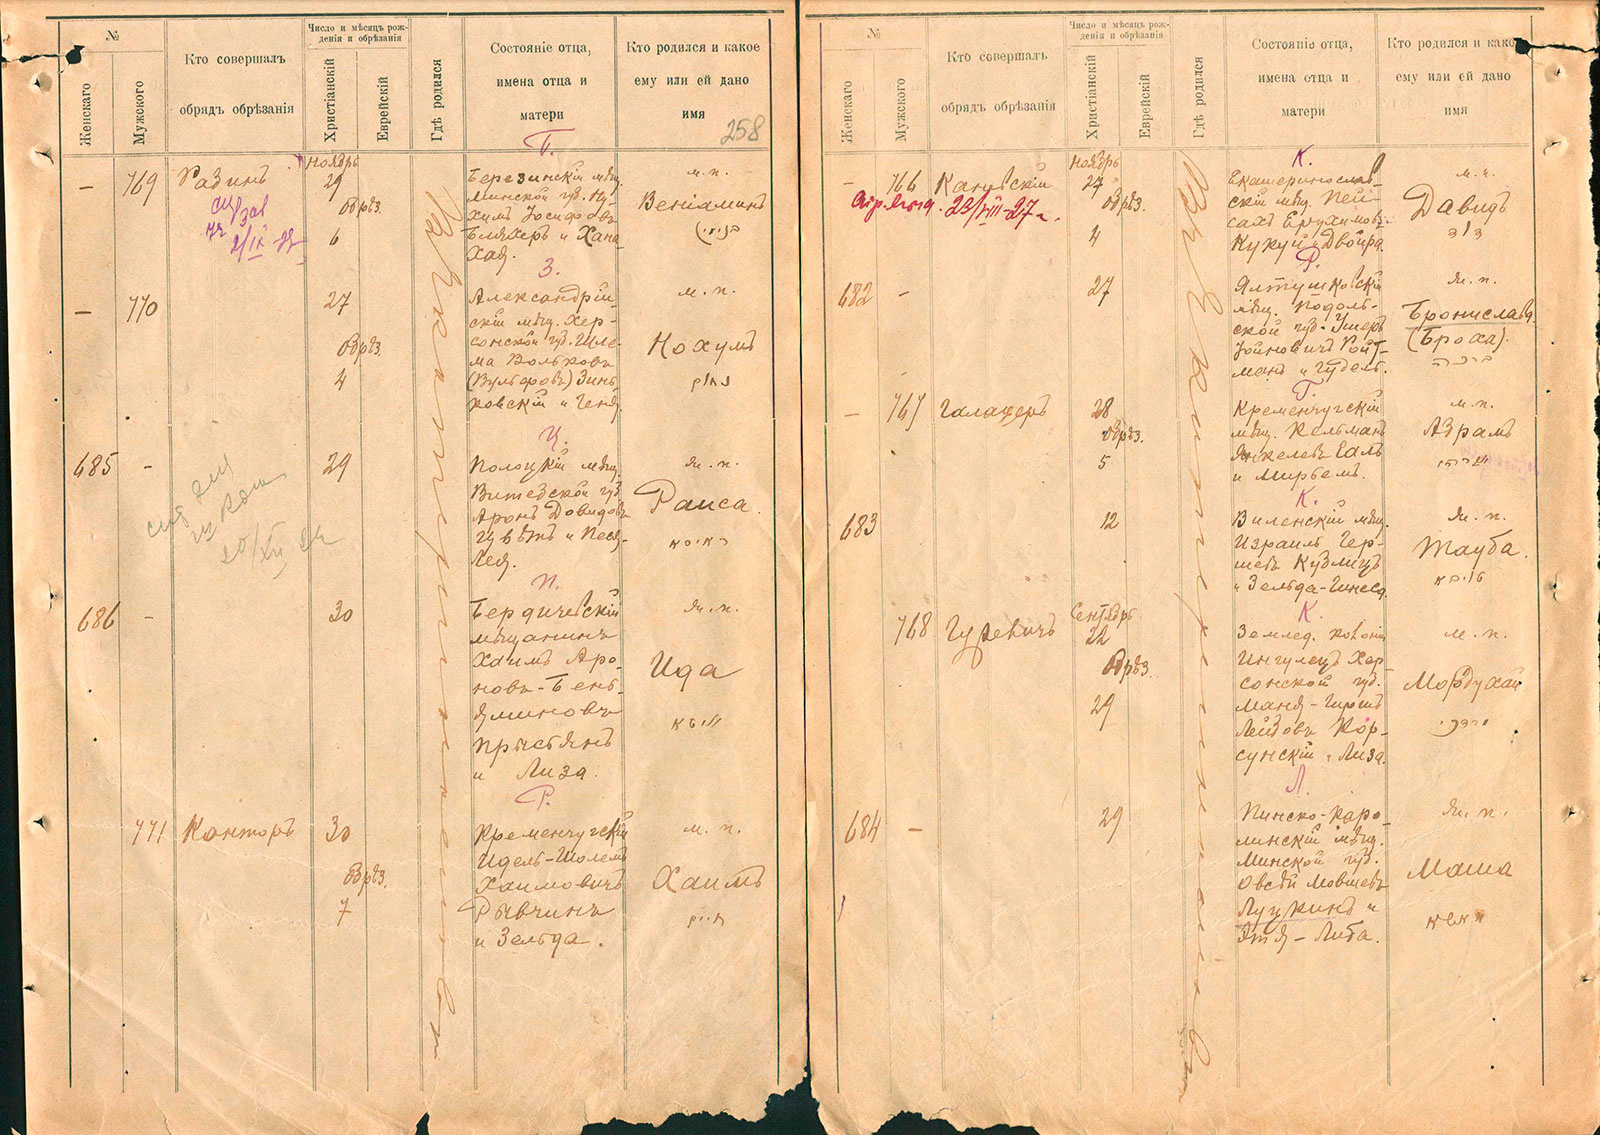 №
Женскаго
Мужского
Кто совершалъ
обрядъ обрѣзанія
Число и мѣсяцъ рож-
денія и обрѣзанія
Христіанскій
Еврейскій
Гдѣ родился
Состояніе отца,
имена отца и
матери
Кто родился и какое
ему или ей дано
имя
258
въ Екатеринославѣ
Б.
– 769 Разинъ
Ноябрь
29
обрѣз.
6
2/IX
Березинскій мѣщ.
Минской губ. Ну-
химъ Іосифовъ
Бляхеръ и Хана
Хая.
м. п.
Веніаминъ
בנימין
З.
– 770
27
обрѣз.
4
Александрій-
скій мѣщ. Хер-
сонской губ. Шле-
ма Вольковъ
(Вульфовъ) Зинь-
ковскій и Геня.
м. п.
Нохумъ
נחום
Ц.
685 –
29
Полоцкій мѣщ.
Витебской губ.
Аронъ Довидовъ
Цвѣтъ и Песя-
Лея.
ж. п.
Раиса.
ראיסא
П.
686 –
30
Бердичевскій
мѣщанинъ
Хаимъ Аро-
новъ-Бень-
яминовъ
и Лиза.
ж. п.
Ида
אידא
Р.
771 Канторъ
30
обрѣз.
7
Кременчугскій
Идель-Шолемъ
Хаимовичъ
Рывчинъ
и Зельда.
м. п.
Хаимъ
חיים
№
Женскаго
Мужского
Кто совершалъ
обрядъ обрѣзанія
Число и мѣсяцъ рож-
денія и обрѣзанія
Христіанскій
Еврейскій
Гдѣ родился
Состояніе отца,
имена отца и
матери
Кто родился и какое
ему или ей дано
имя
въ Екатеринославѣ
К.
– 766 Каневскій
23/VIII–27 г.
Ноябрь
27
обрѣз.
4
Екатеринослав-
скій мѣщ. Пей-
сахъ Ерухимовъ
Кукуй и Двойра.
м. п.
Давидъ
דוד
Р.
682 –
27
Ялтушковскій
мѣщ. Подоль-
ской губ. Ушеръ
Хоиновичъ Ройт-
манъ и Гудель.
ж. п.
Бронислава
(Броха).
ברכה
Г.
– 767 Галаперъ
28
обрѣз.
5
Кременчугскій
мѣщ. Кельманъ
Янкелевъ Галь
и Мирьемъ.
м. п.
Абрамъ
אברהם
К.
683
12
Виленскій мѣщ.
Израиль Гер-
шевъ Кузнецъ
и Зельда-Гинеса.
ж. п.
Тауба.
טויבא
К.
768 Гуревичъ
Сентябрь
22
обрѣз.
29
Землед. колоніи
Ингулецъ Хер-
сонской губ.
Маня-Гиршъ
Лейбовъ Кор-
сунскій и Лиза.
м. п.
Мордухай
מרדכי
Л.
684 –
29
Пинско-Каро-
линскій мѣщ.
Минской губ.
Овсей Мовшевъ
Луцкинъ и
Этя-Либа.
ж. п.
Маша
מאשא